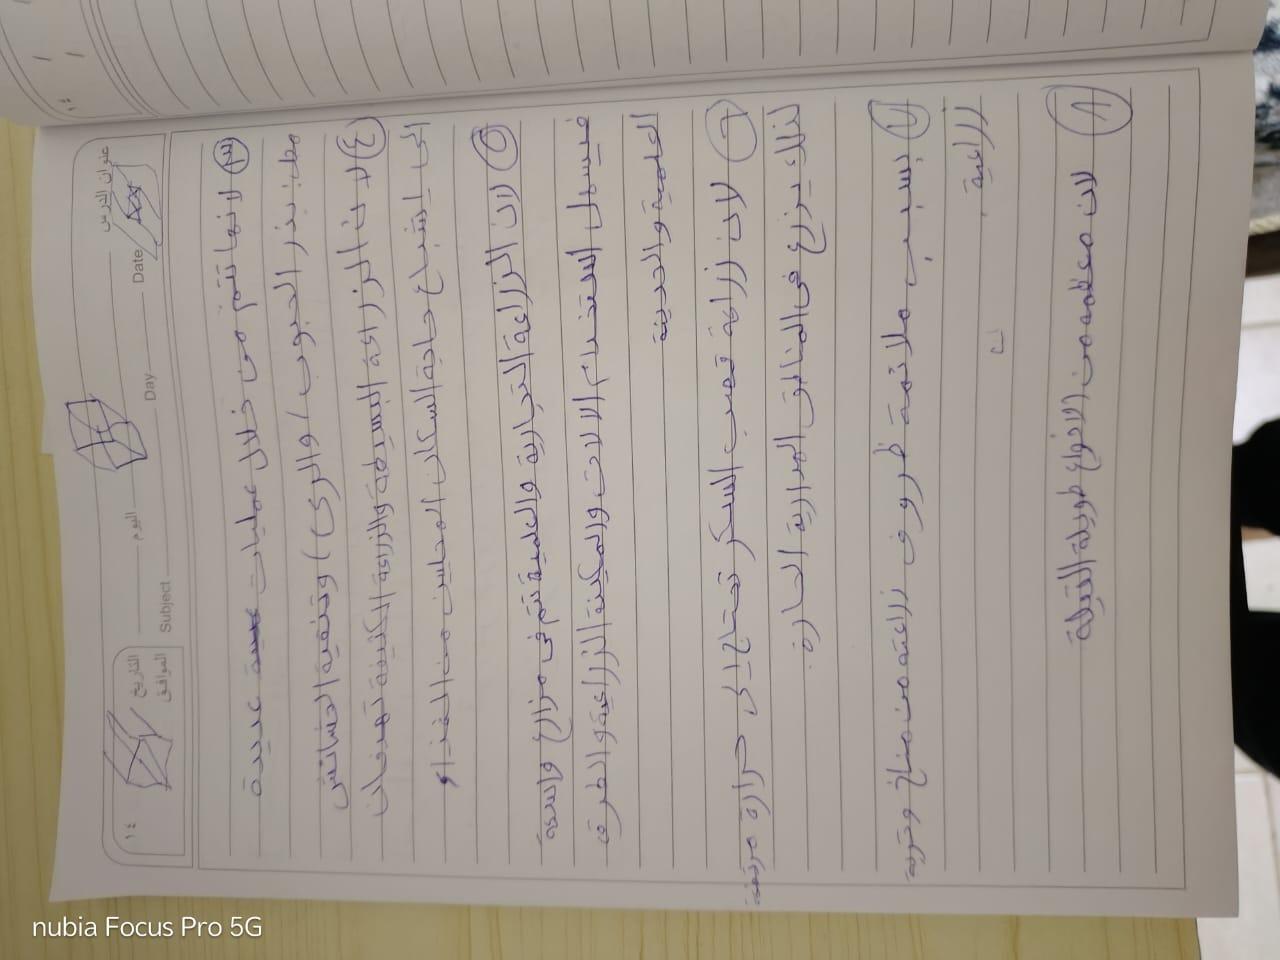 عنوان الدرس
Date
Day
اليوم
Subject
التاريخ
الموافق
١٤
٣ لانها تتم من خلال عمليات عديدة
مثل: بذر الحبوب / والري) وتنقية الحشائش
٤ لان الزراعة البسيطة والزراعة الكثيفة تهدفان
الى اشباع حاجة السكان المحليين من الغذاء
٥ لان الزراعة التجارية والعلمية تتم في مزارع واسعة
فيسهل استخدام الالات والميكنة الزراعية والطرق
العلمية والحديثة
٦ لان زراعة قصب السكر تحتاج الى حرارة مرتفعة
لذلك يزرع في المناطق المدارية الحارة.
٧ بسبب ملائمة ظروف زراعته من مناخ وتربة
زراعية.
٨ لان معظمه من الانواع طويلة التيلة
nubia Focus Pro 5G